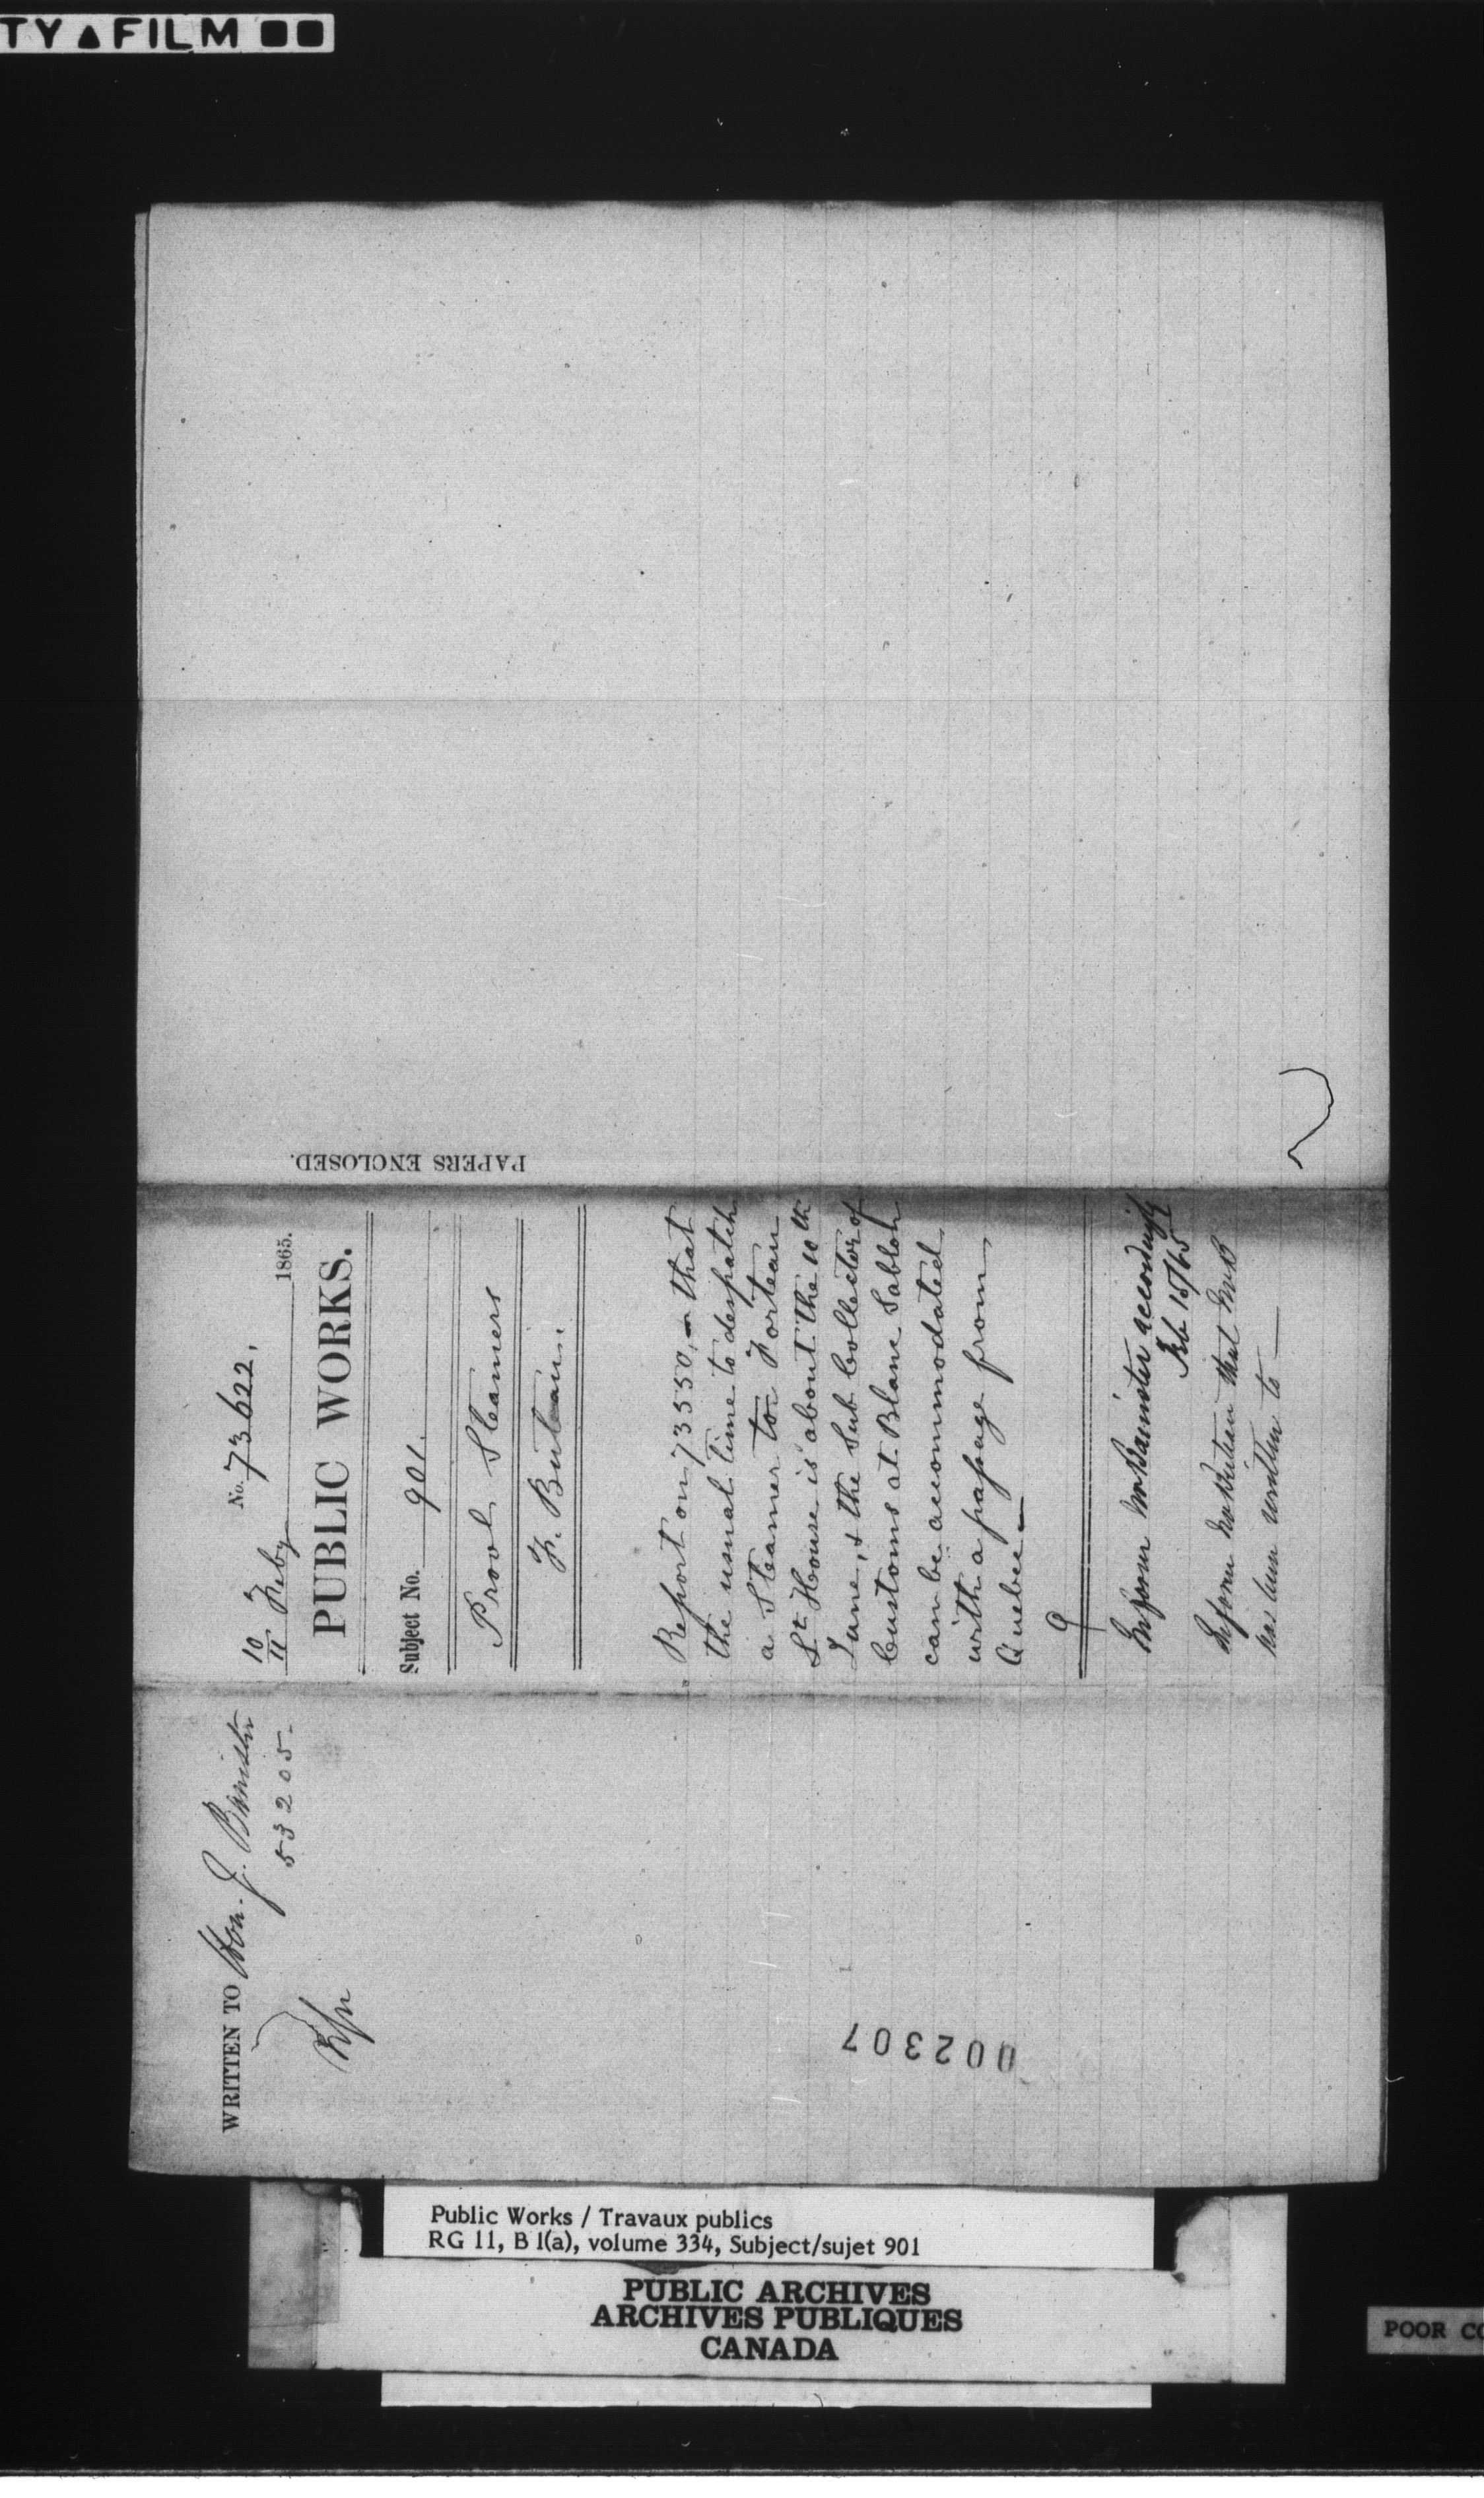 TY▲FILM
WRITTEN TO Hon. J. Bureau
53205-
No. 73622,
10/11 Feby 1865.
PUBLIC WORKS.
Subject No. 901.
Provl Steamers
F. Buteau.
Report on 73550,— that
the usual time to despatch
a Steamer to Forteau
Lt. House is about the 10th
June, & the Sub Collector of
Customs at Blanc Sablon
can be accommodated
with a passage from
Quebec—
Inform accordingly
Feb 15/65
Inform that
has been written to—
PAPERS ENCLOSED.
002307
Public Works / Travaux publics
RG 11, B 1(a), volume 334, Subject/sujet 901
PUBLIC ARCHIVES
ARCHIVES PUBLIQUES
CANADA
POOR CO